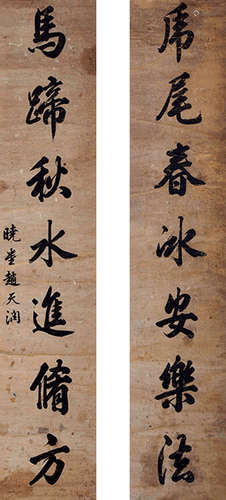 虎尾春冰安樂法
馬蹄秋水進脩方
曉堂趙天潤